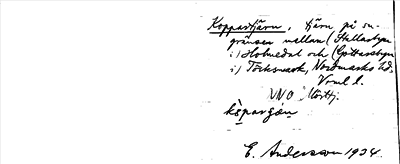 Koppartjärn, tjärn på sn-
gränsen mellan (Hällarbyn
i) Holmedal och (Gottarsbyn
i) Töcksmark, Nordmarks hd.
Vrml l.
VNO Mörttj.
E. Andersson 1934.